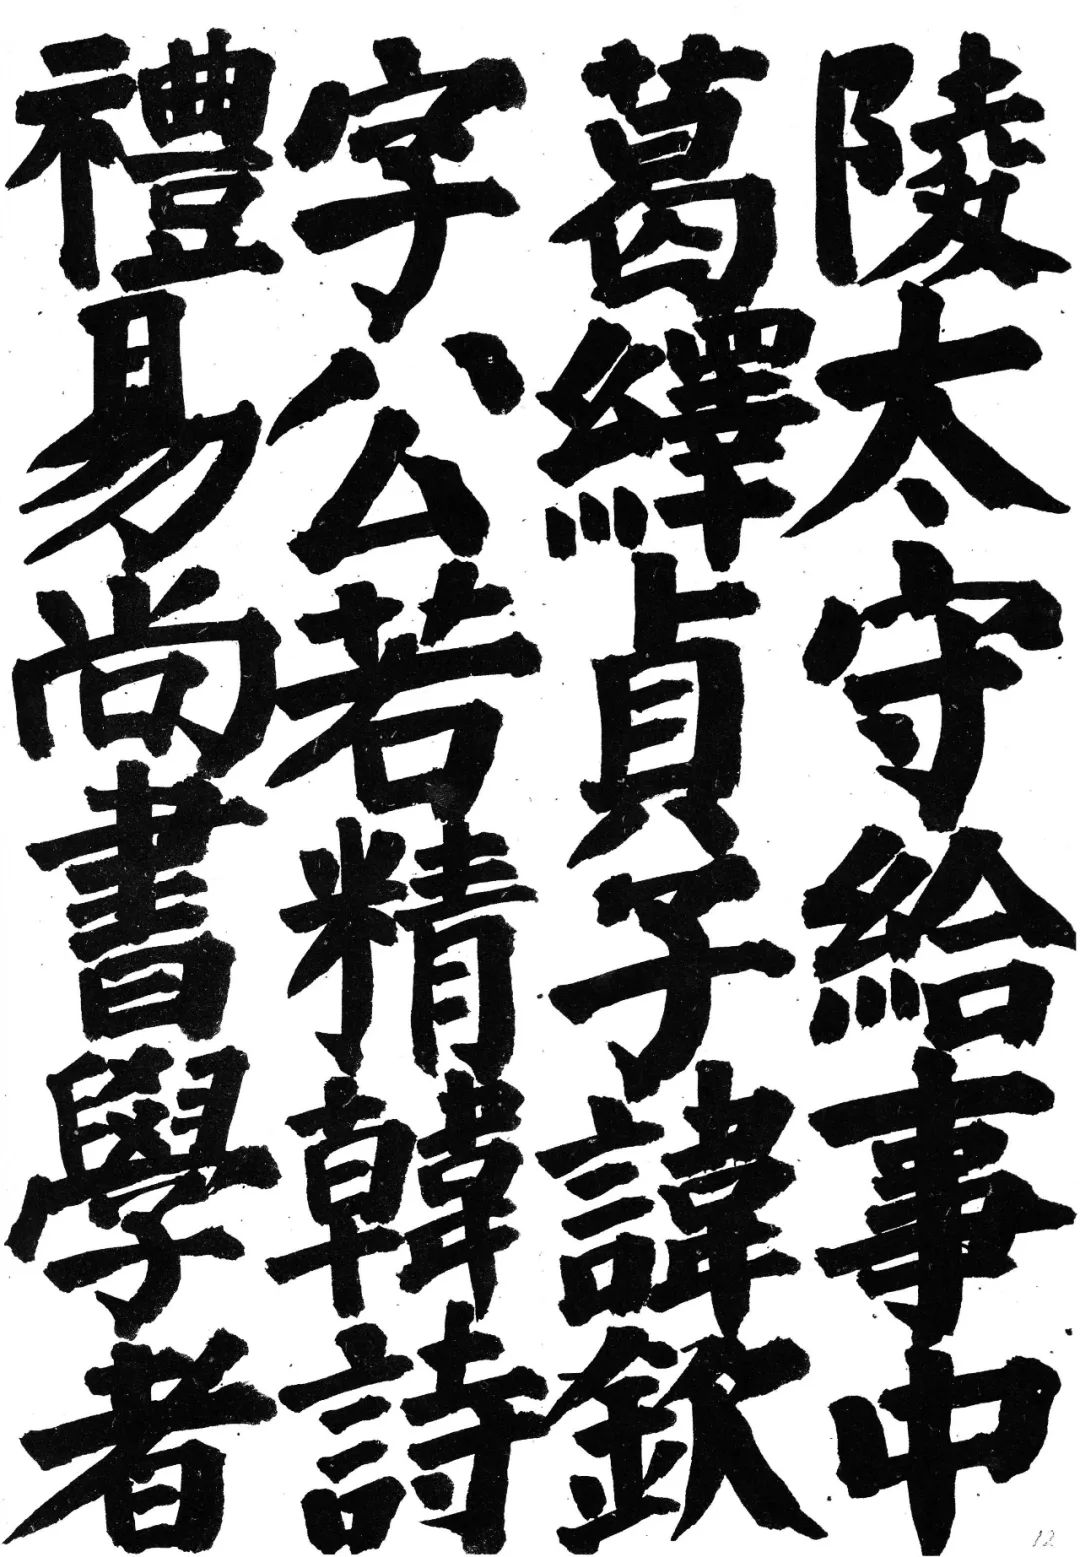 陵太守給事中
葛繹貞子諱欽
字公若精韓詩
禮易尚書學者
12